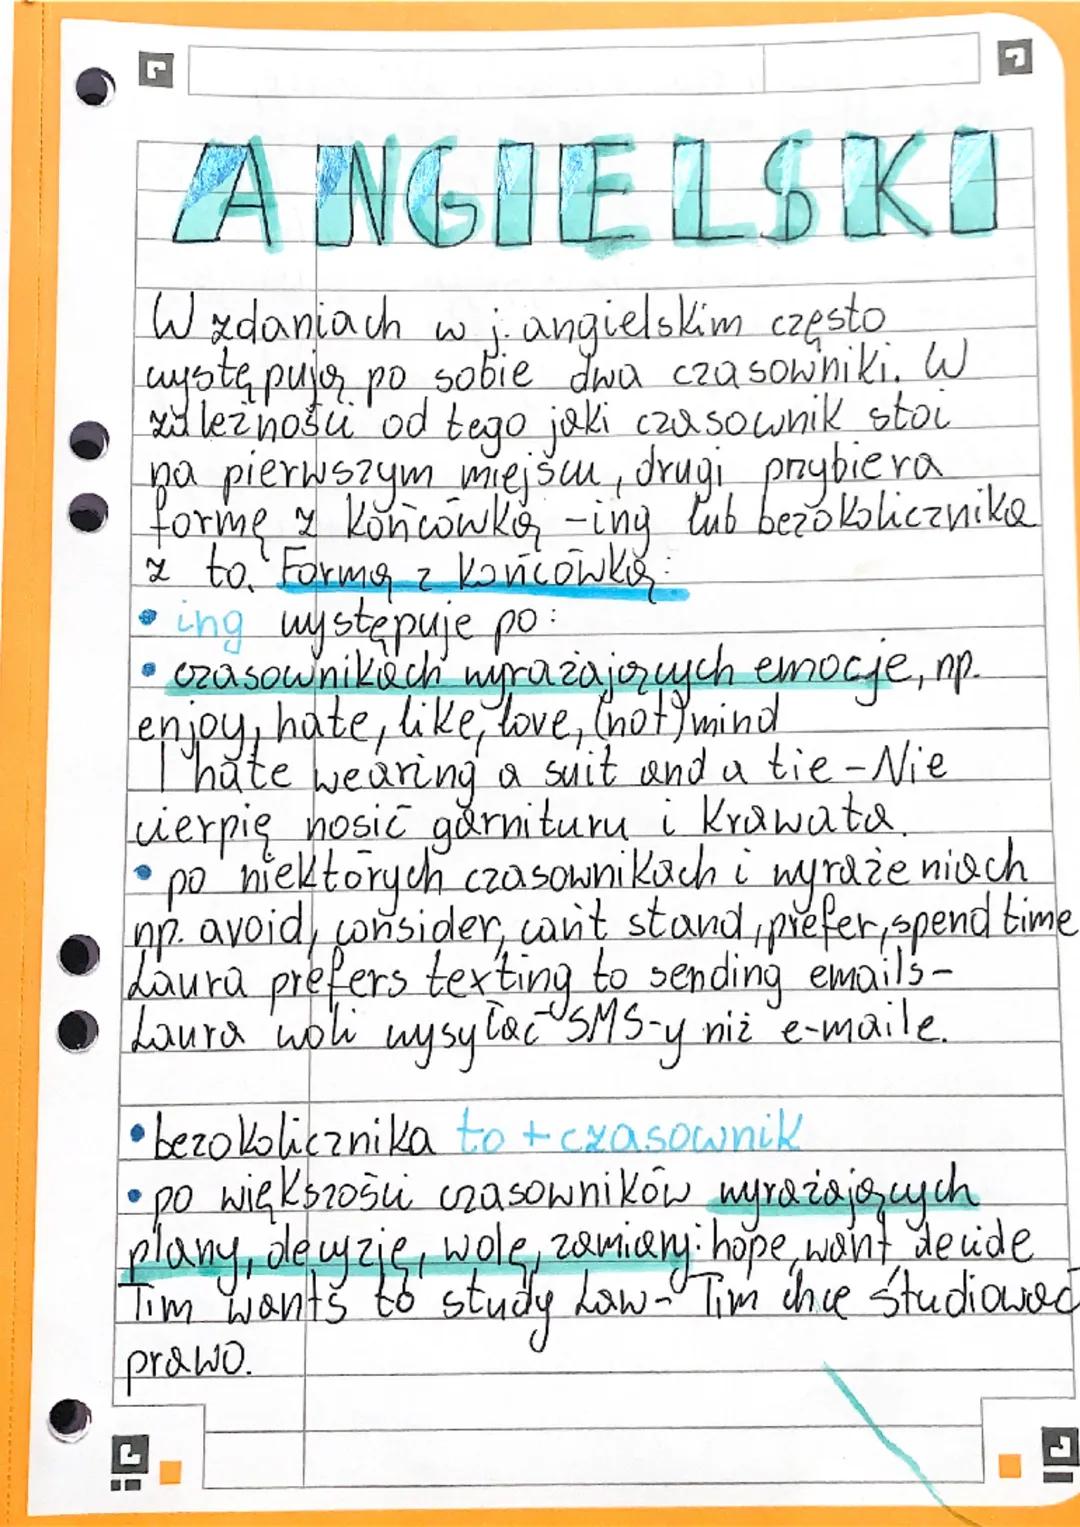 ANGIELSKI
W zdaniach w j. angielskim często
występują po sobie dwa czasowniki. W
zależności od tego jaki czasownik stoi
na pierwszym miejscu, drugi przybiera
formę z końcówką -ing lub bezokolicznika
z to. Formą z końcówką:
• ing występuje po:
• czasownikach wyrażających emocje, np.
enjoy, hate, like, love, (not) mind
I hate wearing a suit and a tie - Nie
cierpię nosić garnituru i krawata.
• po niektórych czasownikach i wyrażeniach
np. avoid, consider, can't stand, prefer, spend time
Laura prefers texting to sending emails -
Laura woli wysyłać SMS-y niż e-maile.
• bezokolicznika to + czasownik
• po większości czasowników wyrażających
plany, decyzję, wolę, zamiary: hope, want decide
Tim wants to study Law - Tim chce studiować
prawo.